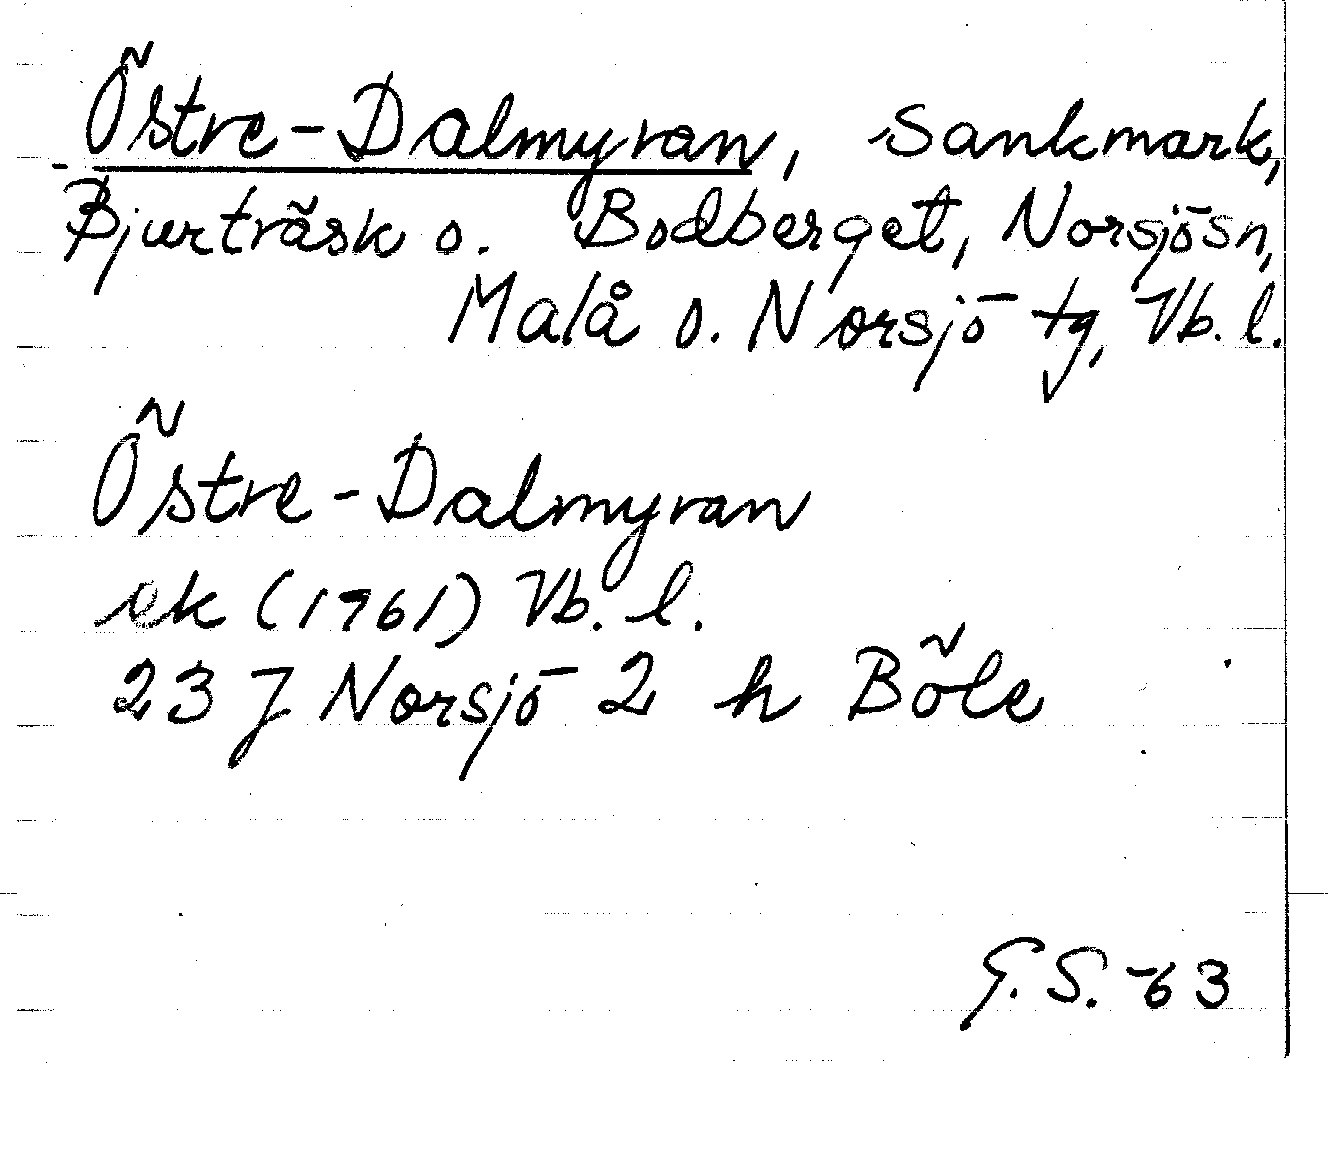 Östre-Dalmyran, sankmark,
Bjurträsk o. Bodberget, Norsjö sn,
Malå o. Norsjö tg, Vb. l.
Östre-Dalmyran
ek (1961) Vb. l.
23 J Norsjö 2 h Böle
G. S. -63